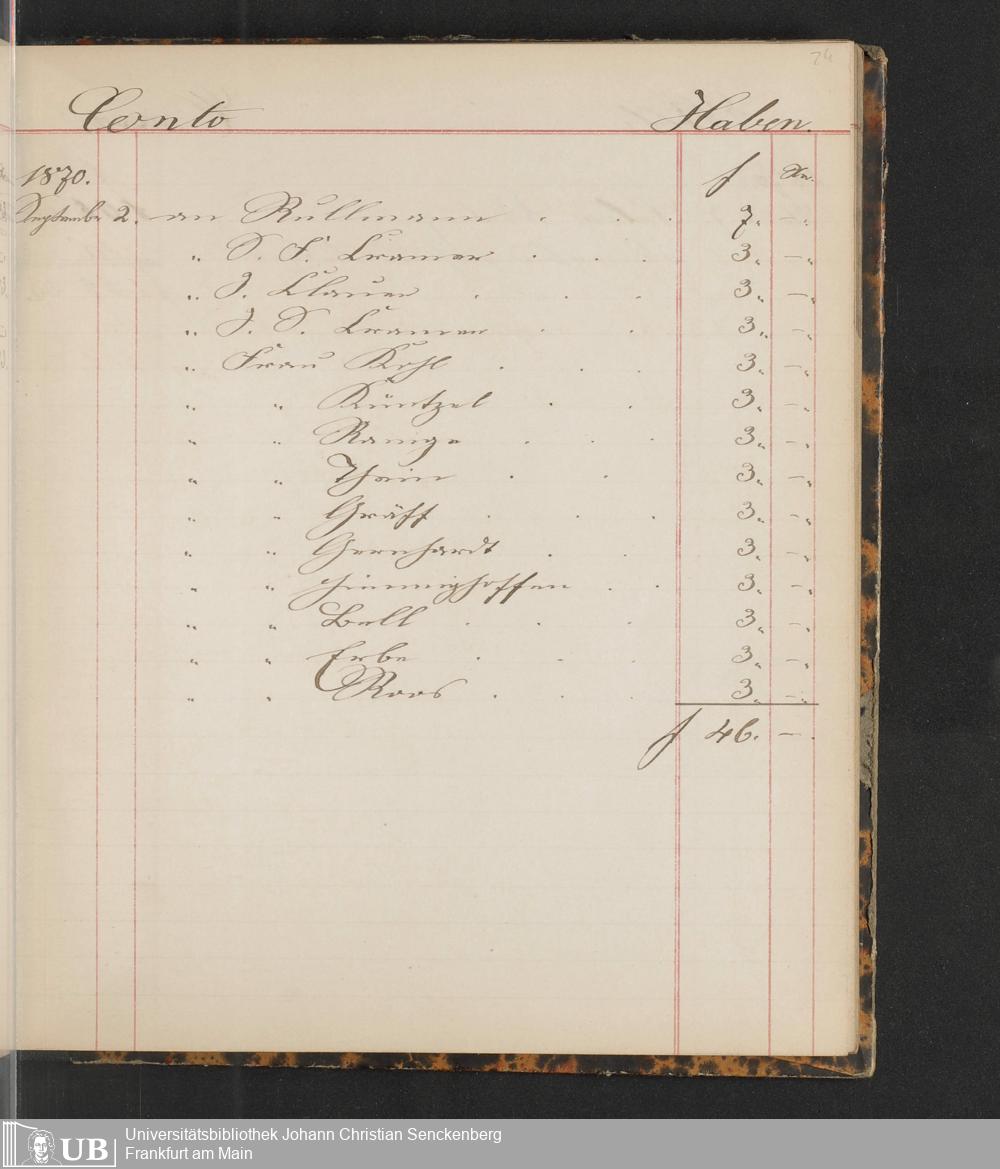 24
Conto Haben.
1870. f Xr.
September 2. an Rullmann . . . 7. —.
„ S. F. Kramer . . . 3. —.
„ J. Klauer . . . 3. —.
„ J. S. Kramer . . 3. —.
„ Frau Kohl . . . 3. —.
„ „ Küntzel . . 3. —.
„ „ Ramge . . . 3. —.
„ „ Thein . . 3. —.
„ „ Gräff . . . 3. —.
„ „ Gernhardt . . 3. —.
„ „ 3. —.
„ „ Bell . . . 3. —.
„ „ Erbe . . . 3. —.
„ „ Roos . . . 3. —.
f 46. —.
UB Universitätsbibliothek Johann Christian Senckenberg
Frankfurt am Main